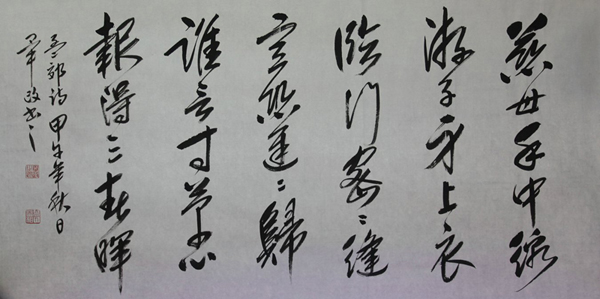 慈母手中線
游子身上衣
臨行密〻縫
意恐遲〻歸
誰言寸草心
報得三春暉
孟郊詩甲午年秋日